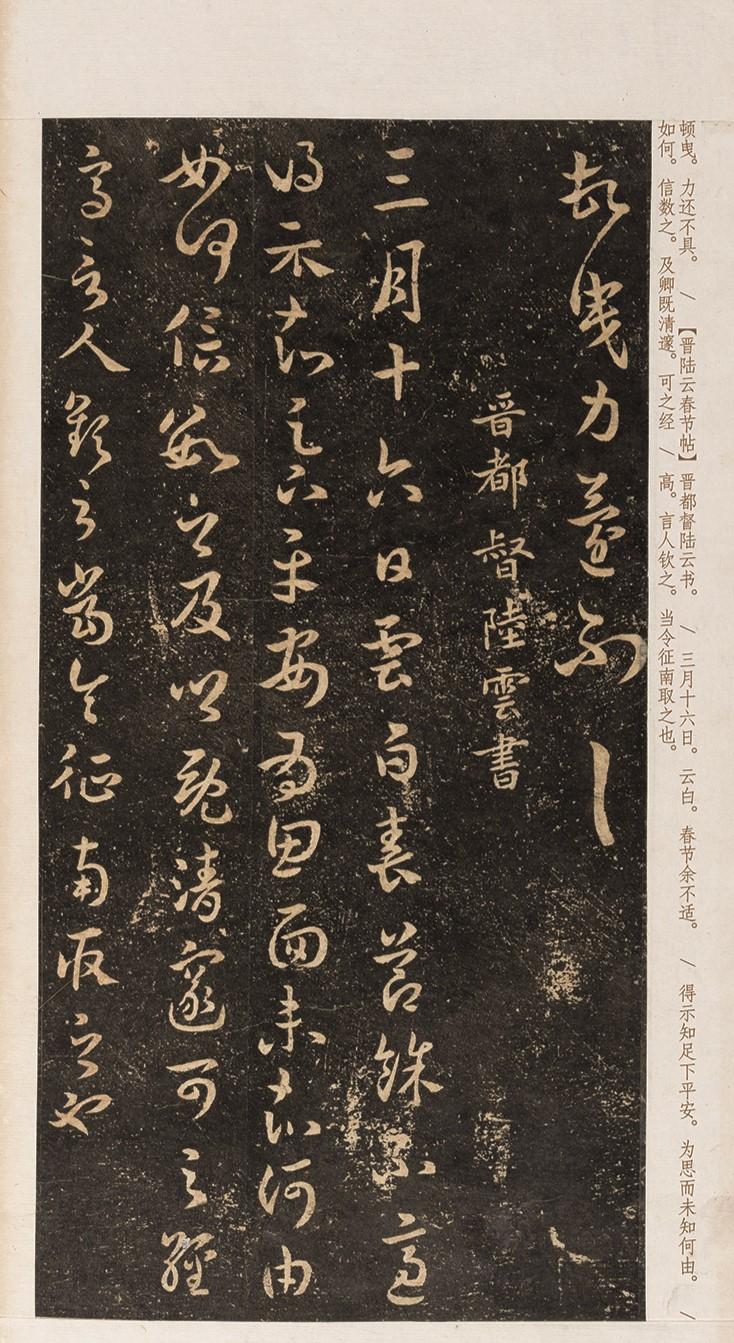 顿曳。力还不具。/【晋陆云春节帖】晋都督陆云书。/三月十六日。云白。春节余不适。/得示知足下平安。为思而未知何由。/
如何。信数之。及卿既清邃。可之经/高。言人钦之。当令征南取之也。
頓曳力還不具
晋都督陸雲書
三月十六日雲白春節餘不適
得示知足下平安為思面未知何由
如何信數之及卿既清邃可之經
高言人欽之當令征南取之也